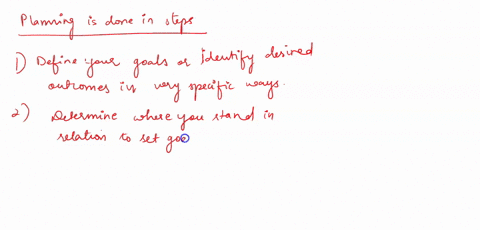 Planning is done in steps
1) Define your goals or identify desired
outcomes in very specific ways.
2) Determine where you stand in
relation to set goa